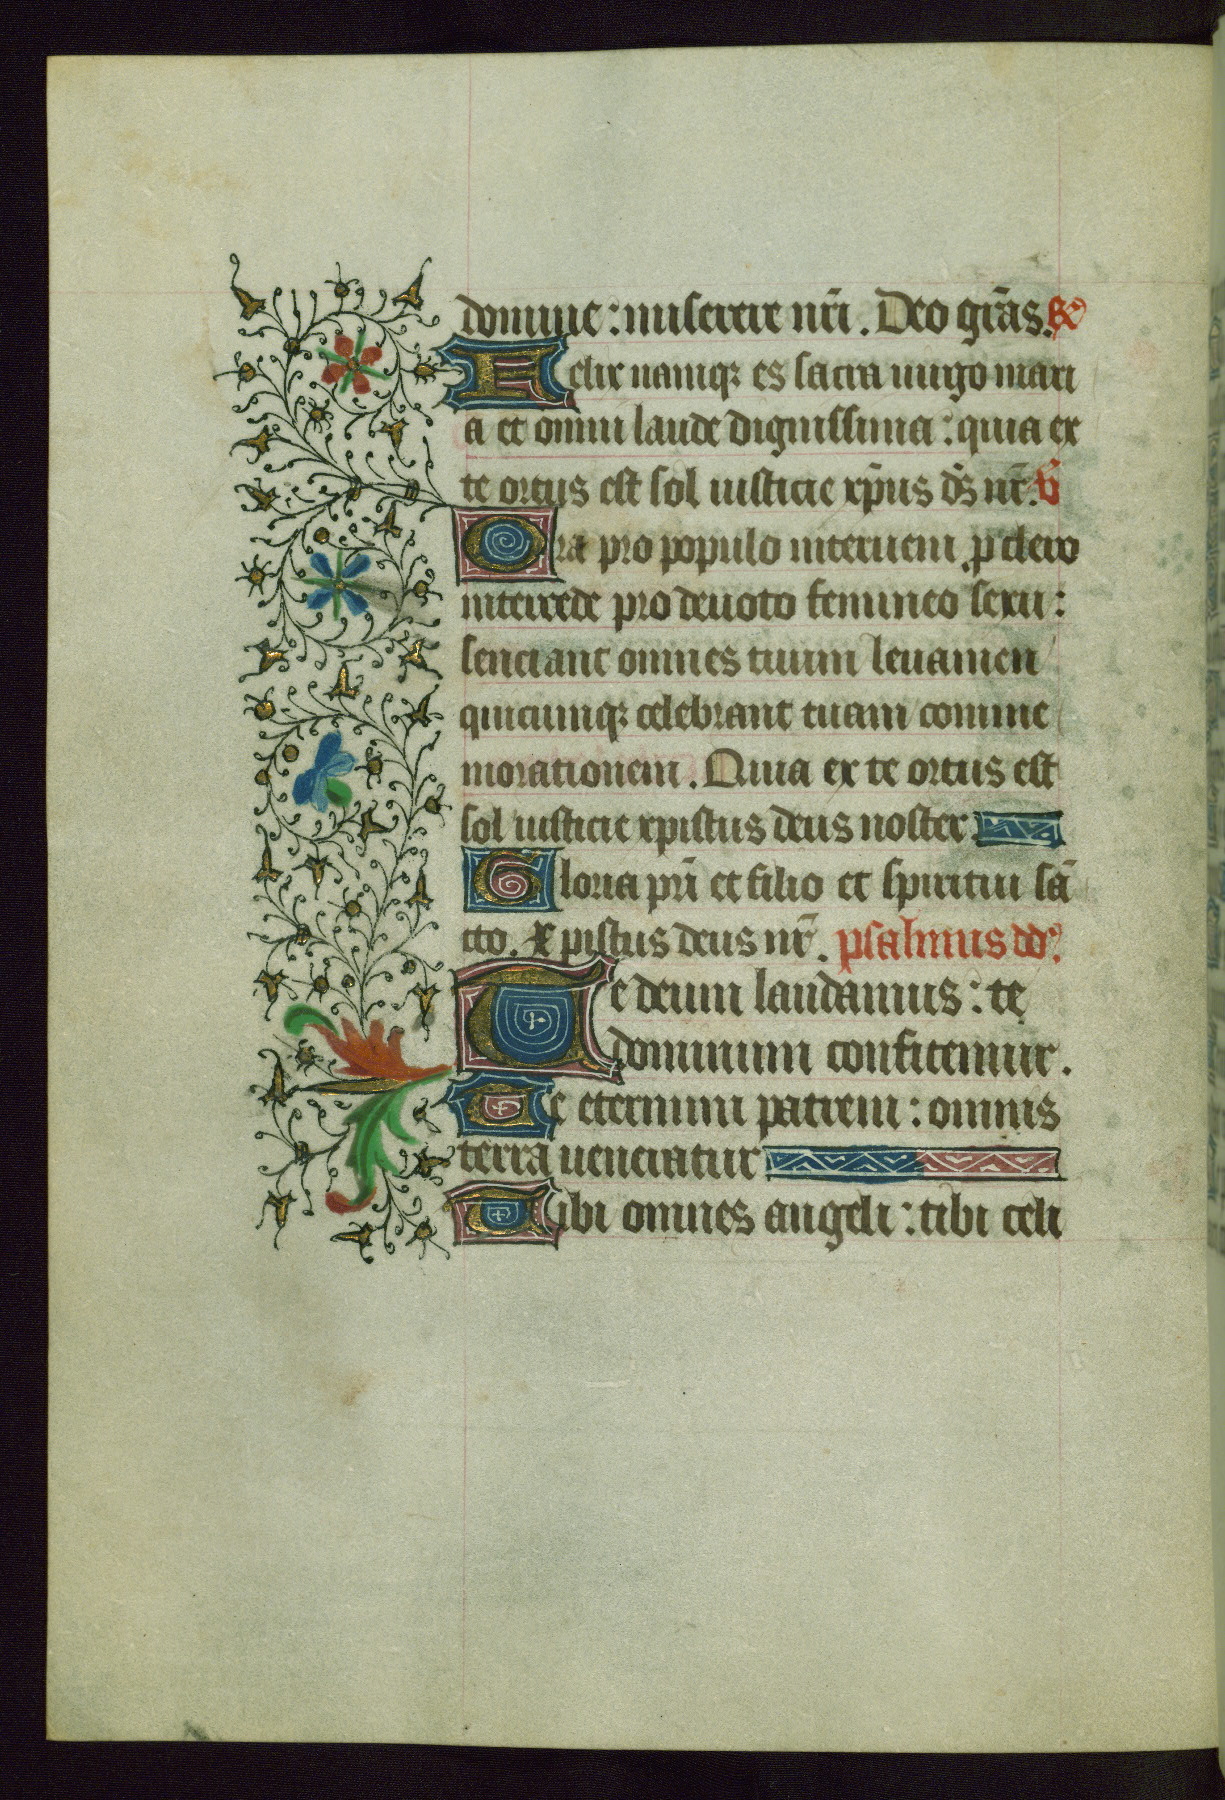 domine : miserere nr̄i . Deo gr̄as . R̄
Felix namq; es sacra uirgo mari
a et omni laude dignissima : quia ex
te ortus est sol iusticie xp̄us ds̄ nr̄ . v̄
Ora pro populo interueni p clero
intercede pro deuoto femineo sexu :
senciant omnes tuum leuamen
quicumq; celebrant tuam comme
morationem . Quia ex te ortus est
sol iusticie xpistus deus noster
Gloria pr̄i et filio et spiritui sā
cto . Xpistus deus nr̄ . psalmus dd̄
Te deum laudamus : te
dominum confitemur .
Te eternum patrem : omnis
terra ueneratur
Tibi omnes angeli : tibi celi